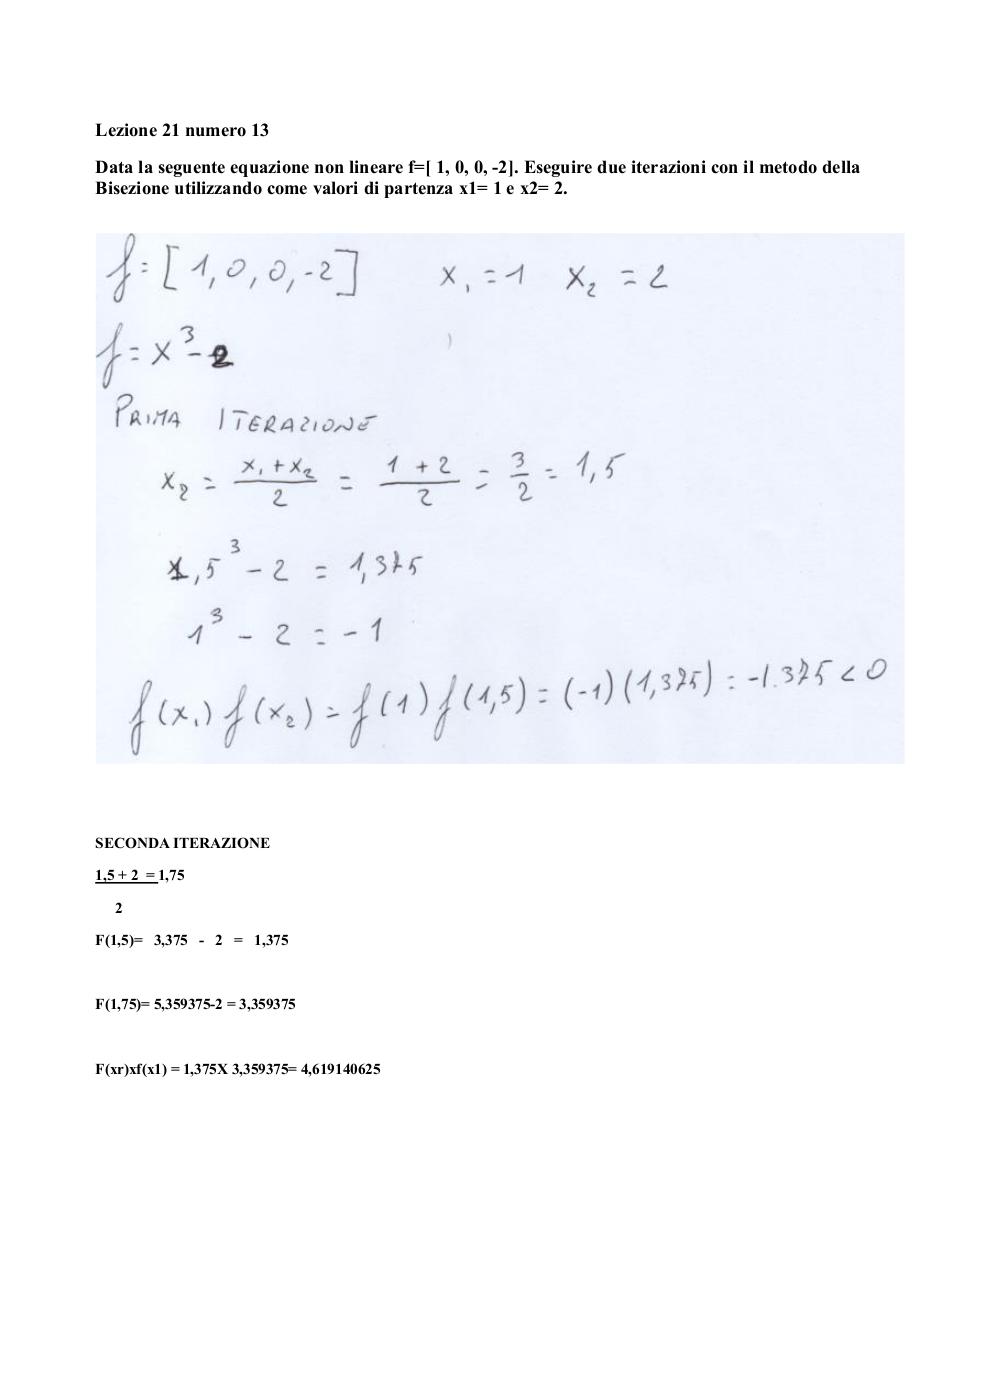 Lezione 21 numero 13
Data la seguente equazione non lineare f=[ 1, 0, 0, -2]. Eseguire due iterazioni con il metodo della
Bisezione utilizzando come valori di partenza x1= 1 e x2= 2.
f = [1, 0, 0, -2] x₁ = 1 x₂ = 2
f = x³ - 2
PRIMA ITERAZIONE
x₂ = (x₁ + x₂)/2 = (1 + 2)/2 = 3/2 = 1,5
1,5³ - 2 = 1,375
1³ - 2 = -1
f(x₁) f(x₂) = f(1) f(1,5) = (-1)(1,375) = -1.375 < 0
SECONDA ITERAZIONE
1,5 + 2 = 1,75
2
F(1,5)= 3,375 - 2 = 1,375
F(1,75)= 5,359375-2 = 3,359375
F(xr)xf(x1) = 1,375X 3,359375= 4,619140625